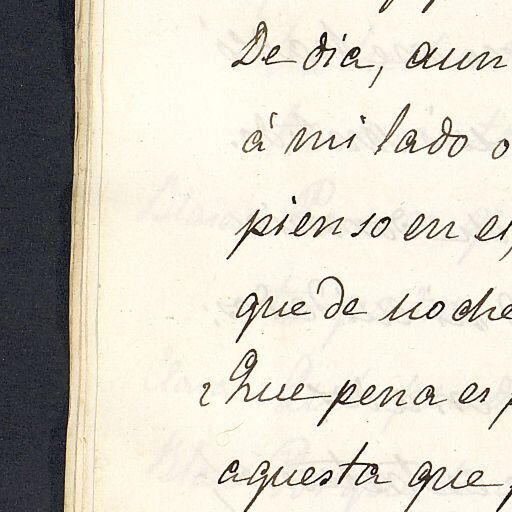 De dia, aun
á mi lado o
pienso en el,
que de noche
¿Que pena es
aquesta que